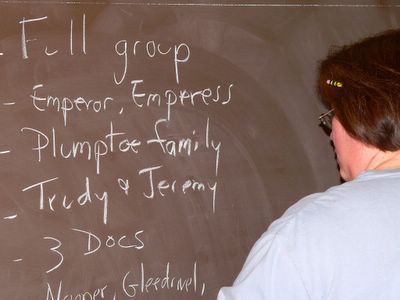 - Full group
- Emperor, Emperess
- Plumptoe family
- Trudy & Jeremy
- 3 Docs
Napper, Gleedrivel,